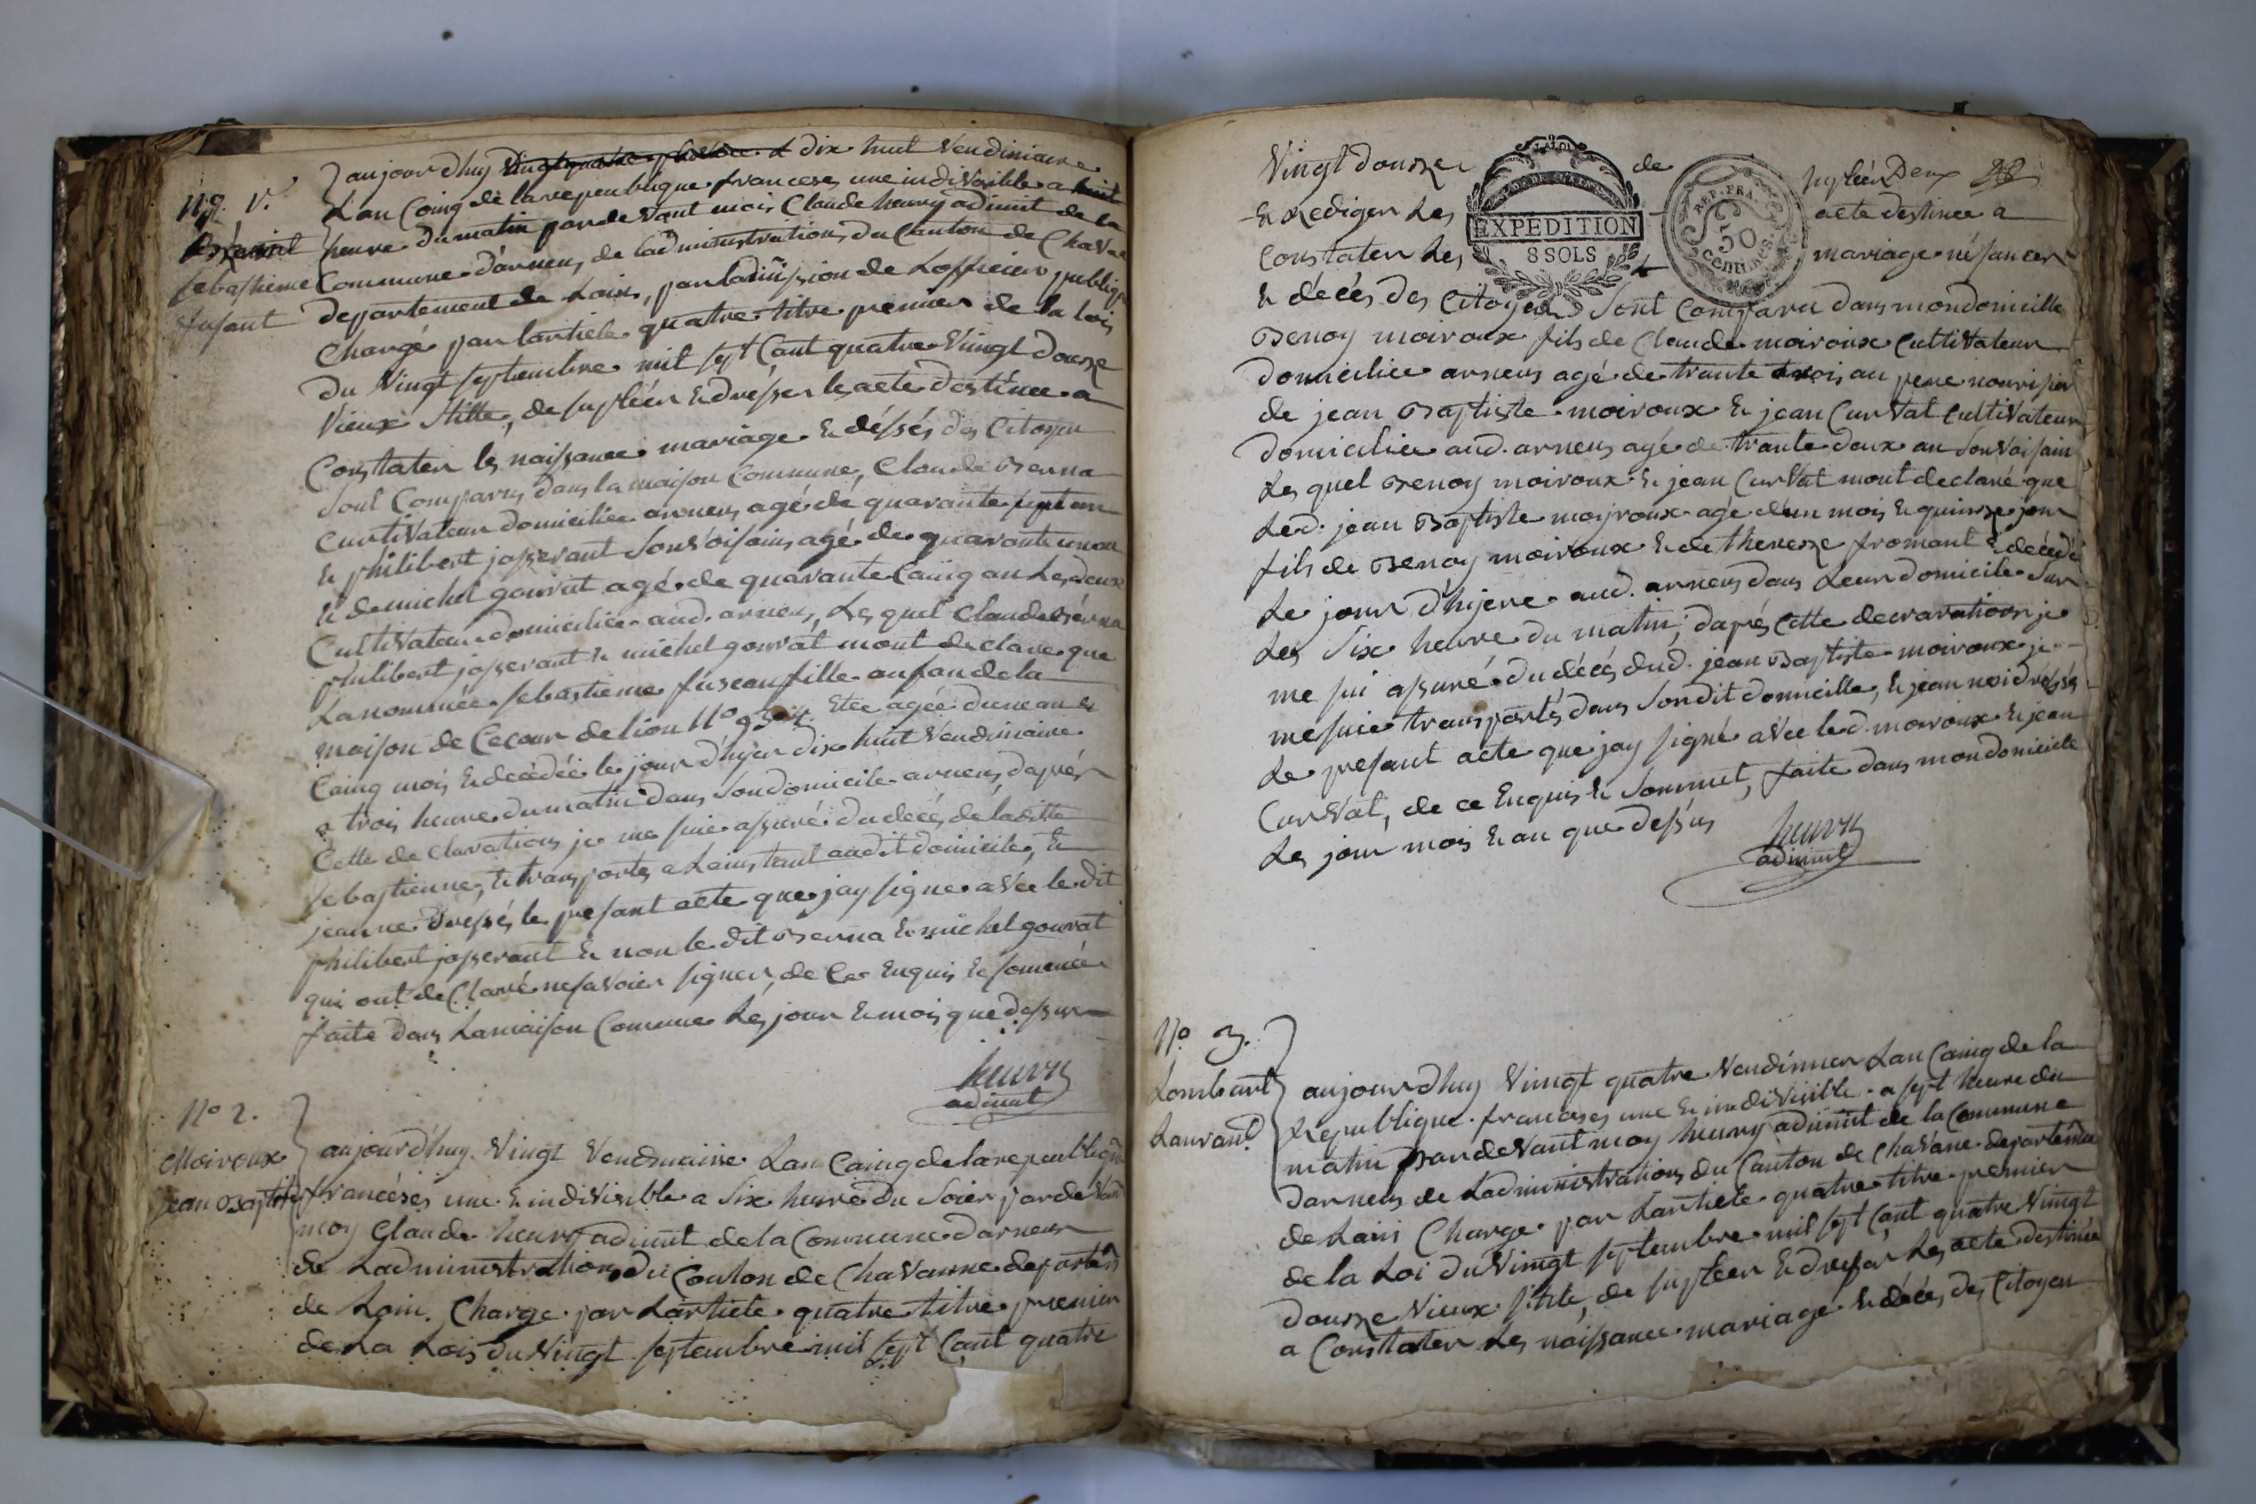 aujourdhuy dix huit Vendimiaire
N.o 1.r Lan Cainq de la repeublique franceses une indivisible a huit
heure du matin pardevant mois Claude heury adimit de la
sebastiene Commune d'arneus, de l'administration du Canton de Chavane
Enfant departement de Lain, par ladmission de Lofficier publique
Chargé par lartiele quatre titre premier de la lois
Du Vingt septembre mil sept Cant quatre Vingt douze
Vieux stille, de supléér & dresser les acte destinee a
Constater les naissance mariage & déssés des Citoyen
sont Comparus dans la maison Commune, Claude Berna
Curtivateur domiciliee arneus agé de quarante sept an
& philibert josserant son voisain agé de quarante un an
& de michel gourat agé de quarante Cainq an Les deux
Cultivateur domiciliee aud. arneus, Les quel Claude Berna
philibert josserant & michel gourat mont declare que
Lanommée sebastiene fuseau fille anfan de la
maison de Cecour de lion N.o Etee agée dune an &
Cainq mois & decedéé le jour d'hyer dix huit Vendimiaire
a trois heure du matin dans son domicile arneus, daprés
Cette declaration je me suie assuré du décés de laditte
sebastienne, & transportes a Lainstant audit domicile, &
jeanne dressés le presant acte que jay signe avec le dit
philibert josserant & non le dit Berna & michel gourat
qui ont declaré ne savoier signer, de Ce Enquis & somméé
faite dans Lamaison Comune Les jour & mois que dessus
heury
adimit
N.o 2.
Moiroux aujourd'huy Vingt Vendmiaire Lan Cainq de la repeublique
jean Baptiste francéses une & indivisible a Six heure du Soier pardevant
moy Claude heury adimit de la Commune darneus
de Ladministration du Conton de Chavanne departem
de Lain, Charge par Lartiele quatre titre premier
de La Lois du Vingt septembre mil sept Cant quatre
Vingt douzze de supléér Deux 28
& Rediger Les acte destinee a
Constater Les mariage néssances
LA LOI
EXPEDITION
8 SOLS
REP. FRA.
50
centimes.
& décés des Citoyen Sont Comparu dans mon domicille
Benoy moiroux fils de Claude moiroux Cultivateur
domiciliee arneus agé de trante trois an pere nourisier
de jean Baptiste moiroux & jean Curvat Cultivateur
domiciliee aud. arneus agé de trante deux an Son Voisain
Les quel Benoy moiroux & jean Curvat mont declaré que
Led. jean Baptiste moiroux agé dun mois & quinsze jour
fils de Benoy moiroux & de theresze fromant & décédé
Le jour d'hyere aud. arneus dans Leur domicile Sur
Les Six heure du matin; daprés Cette decravation je
me sui assuré du décés dud. jean Baptiste moiroux je
me suie transportés dans Son dit domicille, & jean nai dréssés
Le presant acte que jay signé avec led. moiroux & jean
Curvat, de ce Enquis & Sommet, faite dans mon domicile
Les jour mois & an que dessus
heury
adimit
N.o 3.
Lombart aujourdhuy Vingt quatre Vendimier Lan Cainq de la
Laurant Republique franceses une & indivisible a sept heure du
matin pardevant moy heury adimit de la Commune
darneus de Ladministration du Canton de Chavane departemen
de Lain Charge par Lartiele quatre titre premier
de la Loi du Vingt septembre mil sept Cant quatre Vingt
douzze Vieux stile, de supleer & dresser Les acte destinée
a Constater Les naissance mariage & décés des Citoyen